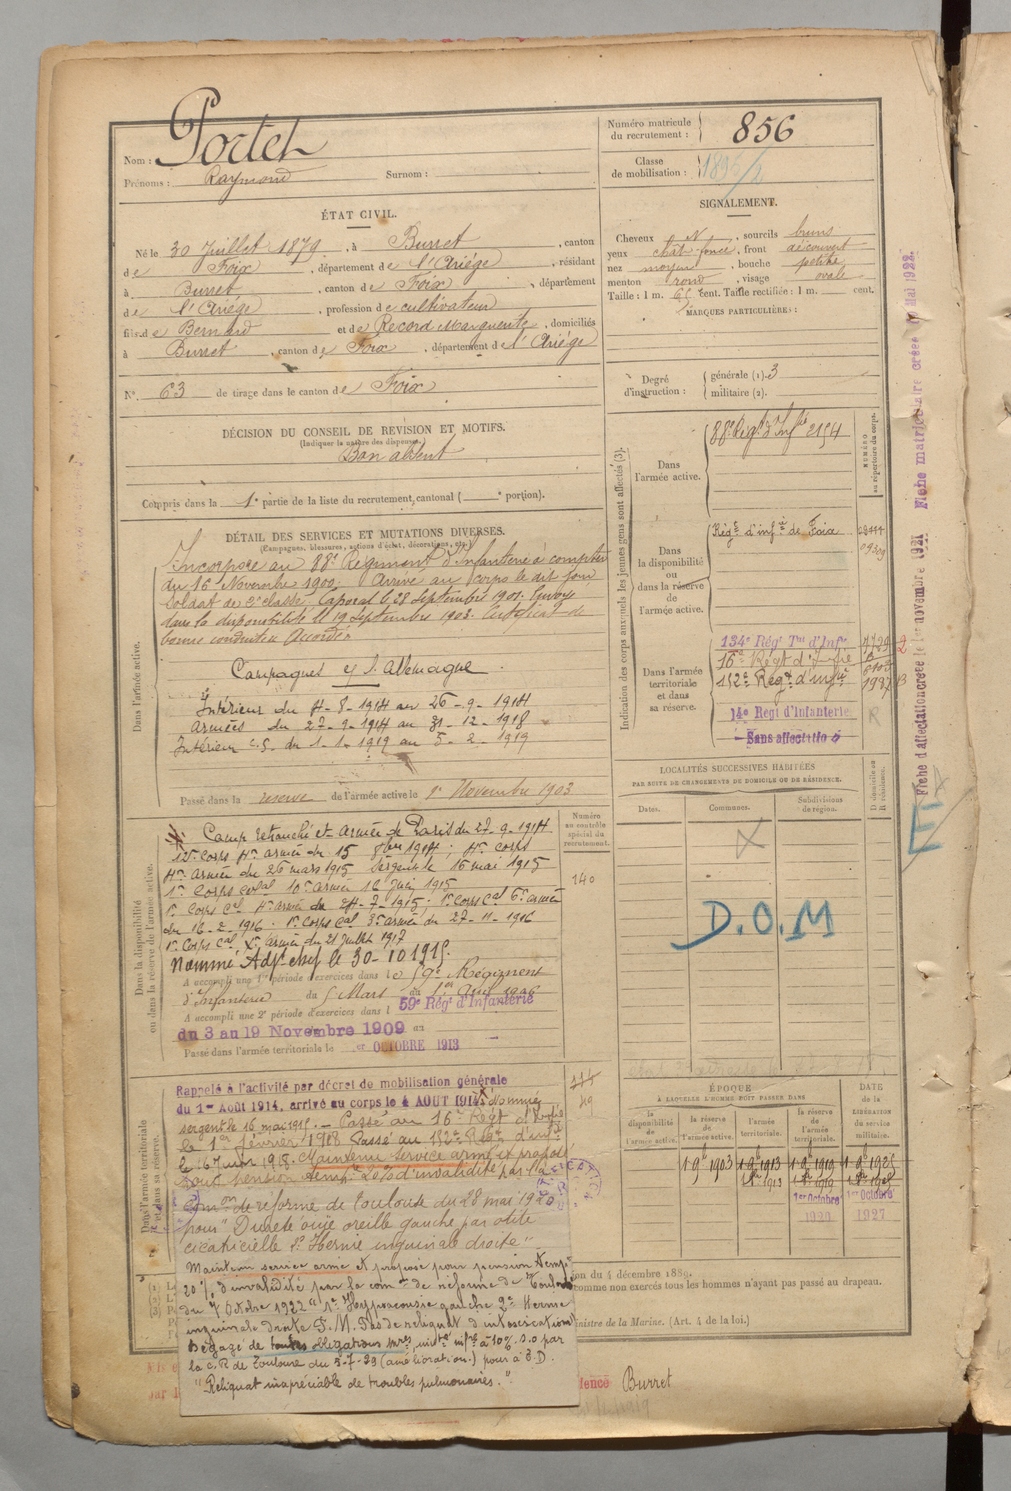 Nom : Portet
Prénoms : Raymond Surnom :
Numéro matricule du recrutement : 856
Classe de mobilisation :
ÉTAT CIVIL.
Né le 30 Juillet 1879, à Burret, canton
de Foix, département de l'Ariége, résidant
à Burret, canton de Foix, département
de l'Ariége, profession de cultivateur
fils de Bernard et de Record Marguerite, domiciliés
à Burret, canton de Foix, département de l'Ariége
N° 63 de tirage dans le canton de Foix
SIGNALEMENT.
Cheveux N, sourcils bruns
yeux chât. foncé, front découvert
nez moyen, bouche petite
menton rond, visage ovale
Taille : 1 m. cent. Taille rectifiée : 1 m. cent.
MARQUES PARTICULIÈRES :
Degré d'instruction : générale (1). 3
militaire (2).
DÉCISION DU CONSEIL DE REVISION ET MOTIFS.
(Indiquer la nature des dispenses.)
Bon absent
Compris dans la 1e partie de la liste du recrutement cantonal ( e portion).
DÉTAIL DES SERVICES ET MUTATIONS DIVERSES.
(Campagnes, blessures, actions d'éclat, décorations, etc.)
Dans l'armée active.
Incorporé au 88e Régiment d'Infanterie à compter
du 16 Novembre 1900. Arrivé au corps le dit jour
Soldat de 2e classe. Caporal le 28 Septembre 1901. Envoyé
dans la disponibilité le 19 Septembre 1903. Certificat de
bonne conduite Accordé.
Campagnes c/ l'Allemagne
Intérieur du 4-8-1914 au 26-9-1914
Armées du 27-9-1914 au 31-12-1918
Intérieur c.s. du 1-1-1919 au 5-2-1919
Passé dans la reserve de l'armée active le 1er Novembre 1903
Dans la disponibilité ou dans la réserve de l'armée active.
Numéro au contrôle spécial du recrutement.
140
Camp retranché et Armée de Paris du 27-9-1914
4me armée du 26 mars 1915 Sergent le 16 mai 1915
1er Corps Cal 10e armée 16 Juin 1915
1er Corps Cal 4e armée du 24-7-1915. 1er Corps Cal 6e armée
du 16-2-1916. 1er Corps Cal 3e armée du 27-11-1916
1er Corps Cal, Xe armée du 21 Juillet 1917
Nommé Adjt chef le 30-10 1915.
A accompli une 1re période d'exercices dans le 59e Régiment
d'Infanterie du 5 Mars au 1er Avril 1906
A accompli une 2e période d'exercices dans l 59e Régt d'Infanterie
du 3 au 19 Novembre 1909 au
Passé dans l'armée territoriale le 1er OCTOBRE 1913
Dans l'armée territoriale et dans sa réserve.
Rappelé à l'activité par décret de mobilisation générale
du 1er Août 1914, arrivé au corps le 4 AOUT 1914. Nommé
sergent le 16 mai 1915. - Passé au 16e Régt d'Infie
le 1er février 1918 Passé au 152e Régt d'infie
le 16 Mars 1918. Maintenu Service armé et proposé
pour pension tempre 20% d'invalidité par la
Comon de réforme de Toulouse du 28 mai 1920
pour "Dureté ouïe oreille gauche par otite
cicatricielle 2° Hernie inguinale droite"
Maintenu service armé et proposé pour pension temp
20% d'invalidité par la comon de réforme de Toulouse
du 7 Octobre 1922 "1° Hypoacousie gauche 2° Hernie
inguinale droite P.M. Pas de reliquat d'intoxication
Dégagé de toutes obligations mres, invte infre à 10% s.o par
la C.R de Toulouse du 5-7-29 (amélioration) pour à B.D.
"Reliquat inappréciable de troubles pulmonaires."
Indication des corps auxquels les jeunes gens sont affectés (3).
Dans l'armée active.
88e Régt d'Infie 2154
NUMÉRO au répertoire du corps.
Dans la disponibilité ou dans la réserve de l'armée active.
Régt d'infie de Foix
Dans l'armée territoriale et dans sa réserve.
134e Régt Tal d'Infie
16e Régt d'Infie
152e Régt d'infie
14e Regt d'Infanterie
Sans affectation
LOCALITÉS SUCCESSIVES HABITÉES
PAR SUITE DE CHANGEMENTS DE DOMICILE OU DE RÉSIDENCE.
Dates. Communes. Subdivisions de région. D domicile ou R résidence.
D.O.M
ÉPOQUE
À LAQUELLE L'HOMME DOIT PASSER DANS
DATE DE LA LIBÉRATION du service militaire.
la disponibilité de l'armée active. la réserve de l'armée active. l'armée territoriale. la réserve de l'armée territoriale.
1 9bre 1903 1 9bre 1913 1 9bre 1919 1 9bre 1925
1er Octobre 1920 1er Octobre 1927
Fiche d'affectation créée le 1er novembre 1921 Fiche matriculaire créée Mai 1922.
on du 4 décembre 1889.
comme non exercés tous les hommes n'ayant pas passé au drapeau.
inistre de la Marine. (Art. 4 de la loi.)
dence Burret